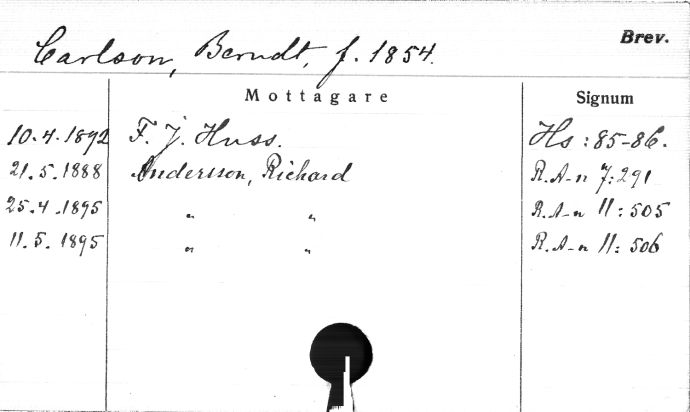 Carlson, Berndt, f. 1854.
Brev.
Mottagare Signum
10.4.1892 F. J. Huss. Hs: 85-86.
21.5.1888 Andersson, Richard R.A-n 7:291
25.4.1895 " " R.A-n 11:505
11.5.1895 " " R.A-n 11:506